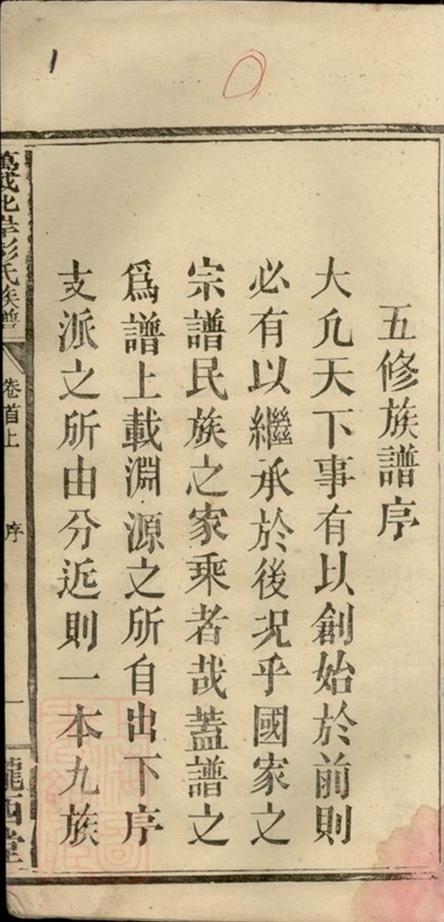 五修族譜序
大凢天下事有以創始於前則
必有以繼承於後况乎國家之
宗譜民族之家乘者哉蓋譜之
爲譜上載淵源之所自出下序
支派之所由分近則一本九族
氏族譜
卷首上
序
一
隴西堂
1